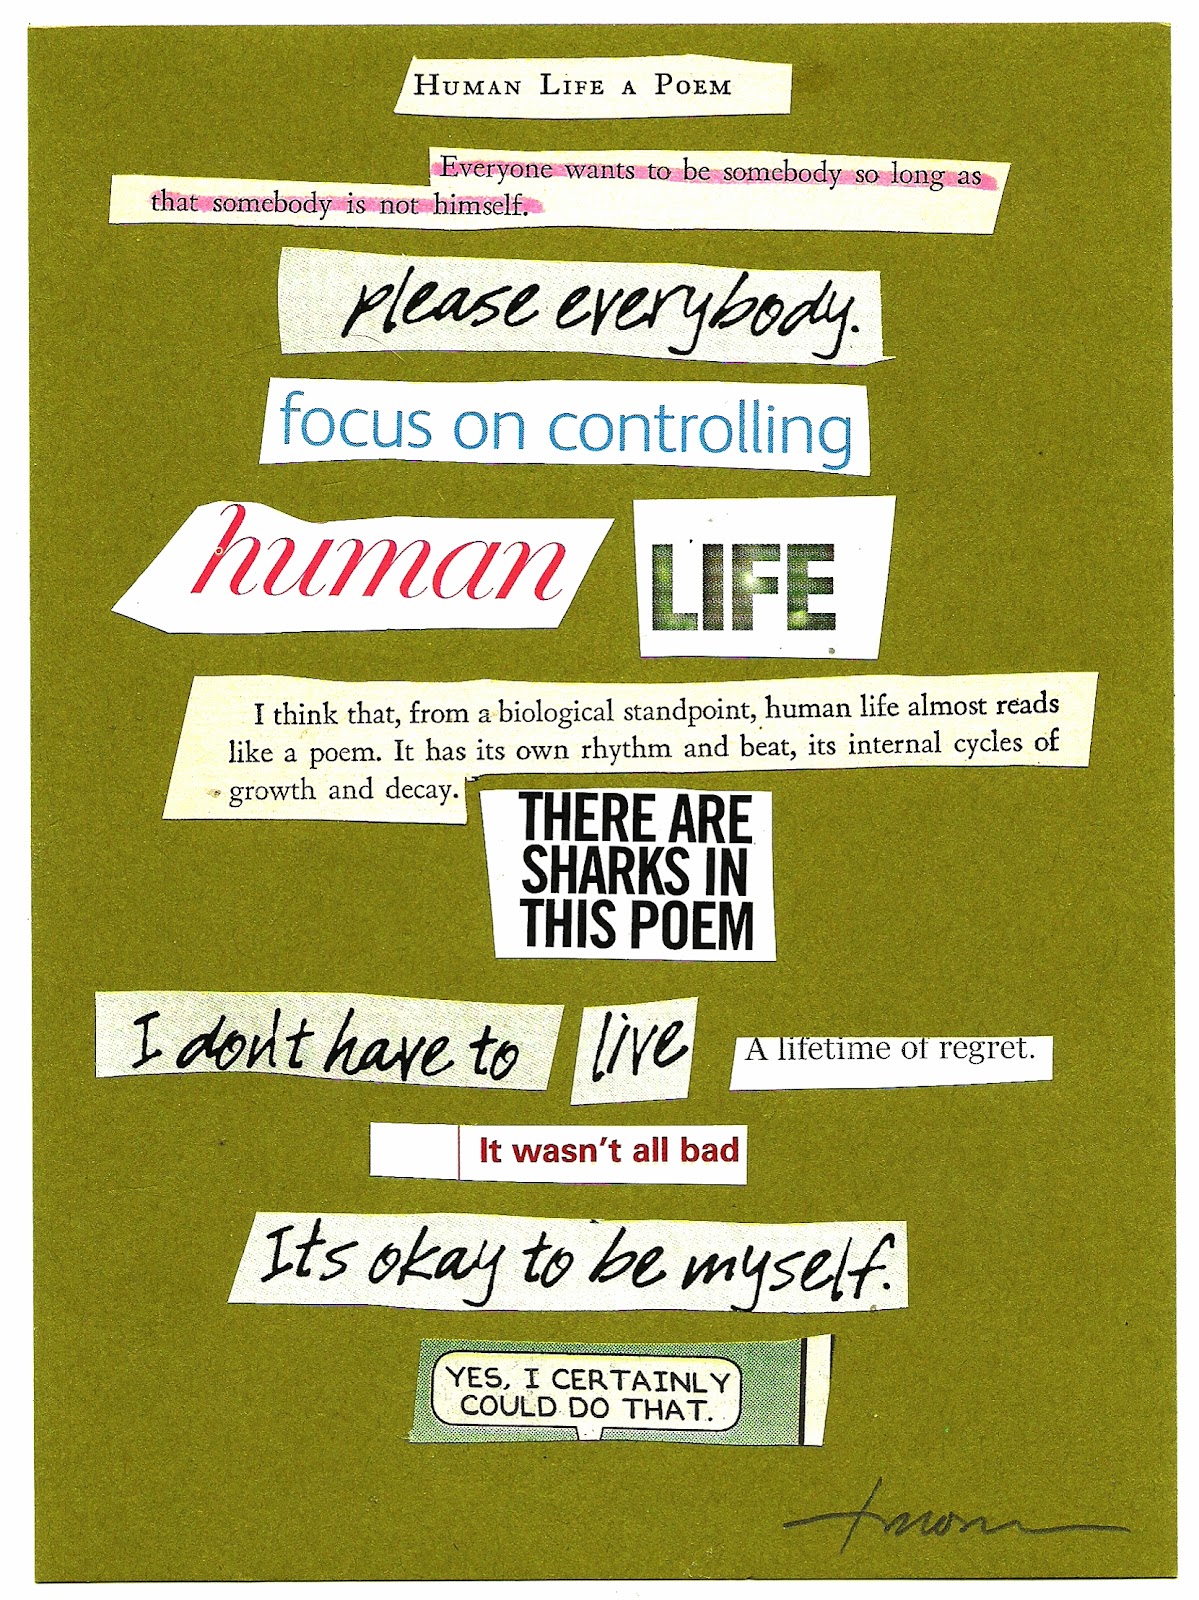 HUMAN LIFE A POEM
Everyone wants to be somebody so long as
that somebody is not himself.
please everybody.
focus on controlling
human LIFE
I think that, from a biological standpoint, human life almost reads
like a poem. It has its own rhythm and beat, its internal cycles of
growth and decay.
THERE ARE
SHARKS IN
THIS POEM
I don't have to live A lifetime of regret.
It wasn't all bad
Its okay to be myself.
YES, I CERTAINLY
COULD DO THAT.